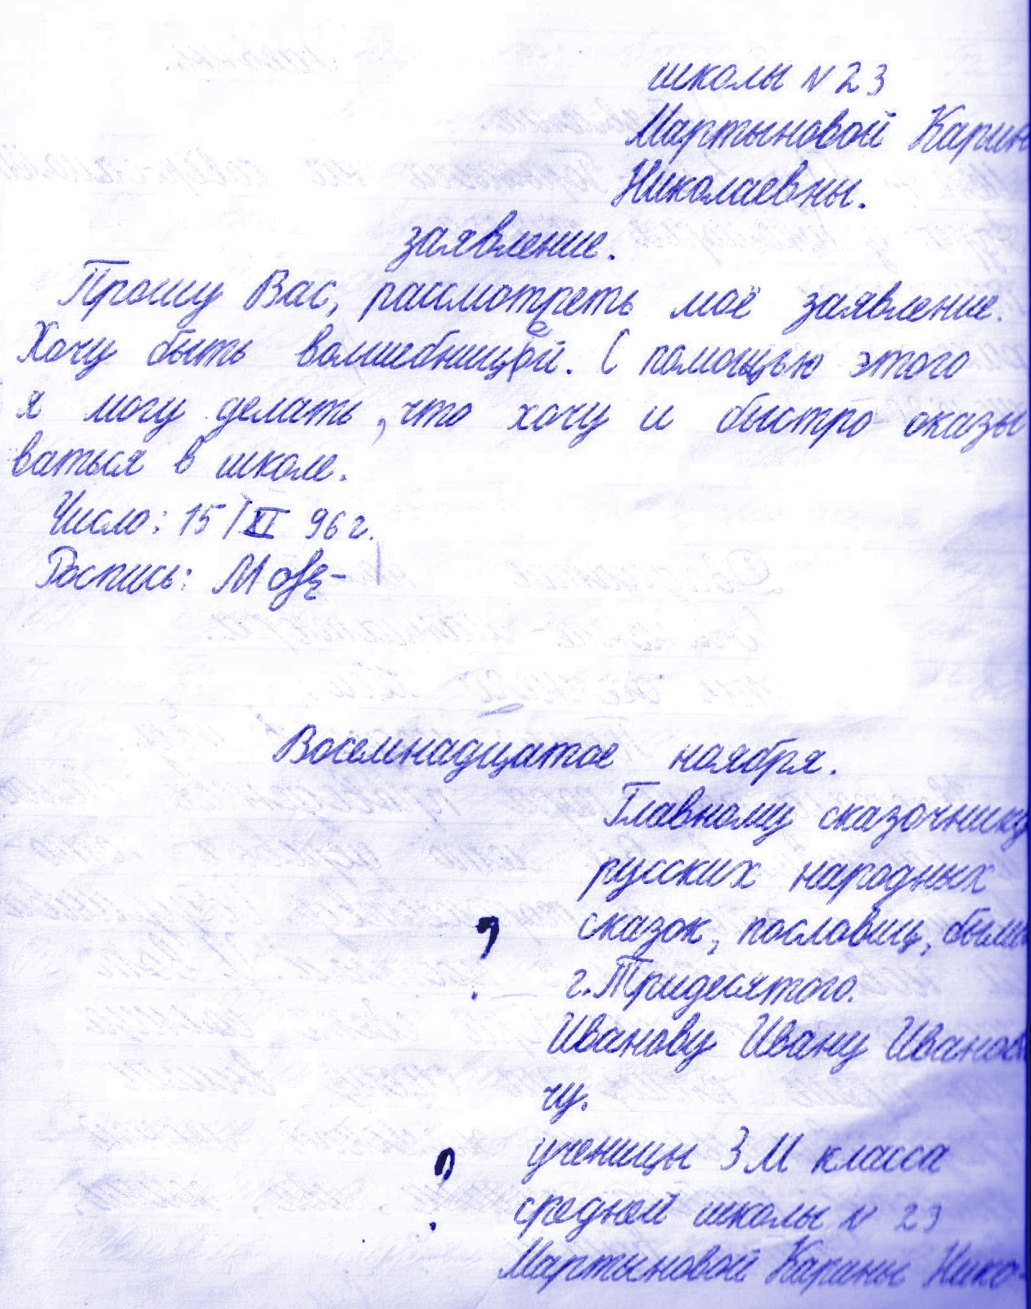 школы N 23
Мартыновой Карин
Николаевны.
заявление.
Прошу Вас, рассмотреть моё заявление.
Хочу быть волшебницей. С помощью этого
я могу делать, что хочу и быстро оказы
ваться в школе.
Число: 15/XI 96 г.
Роспись: М
Восемнадцатое ноября.
Главному сказочнику
русских народных
сказок, пословиц, были
г. Тридесятого.
Иванову Ивану Иванов
чу.
ученицы 3 М класса
средней школы N 23
Мартыновой Карины Нико-